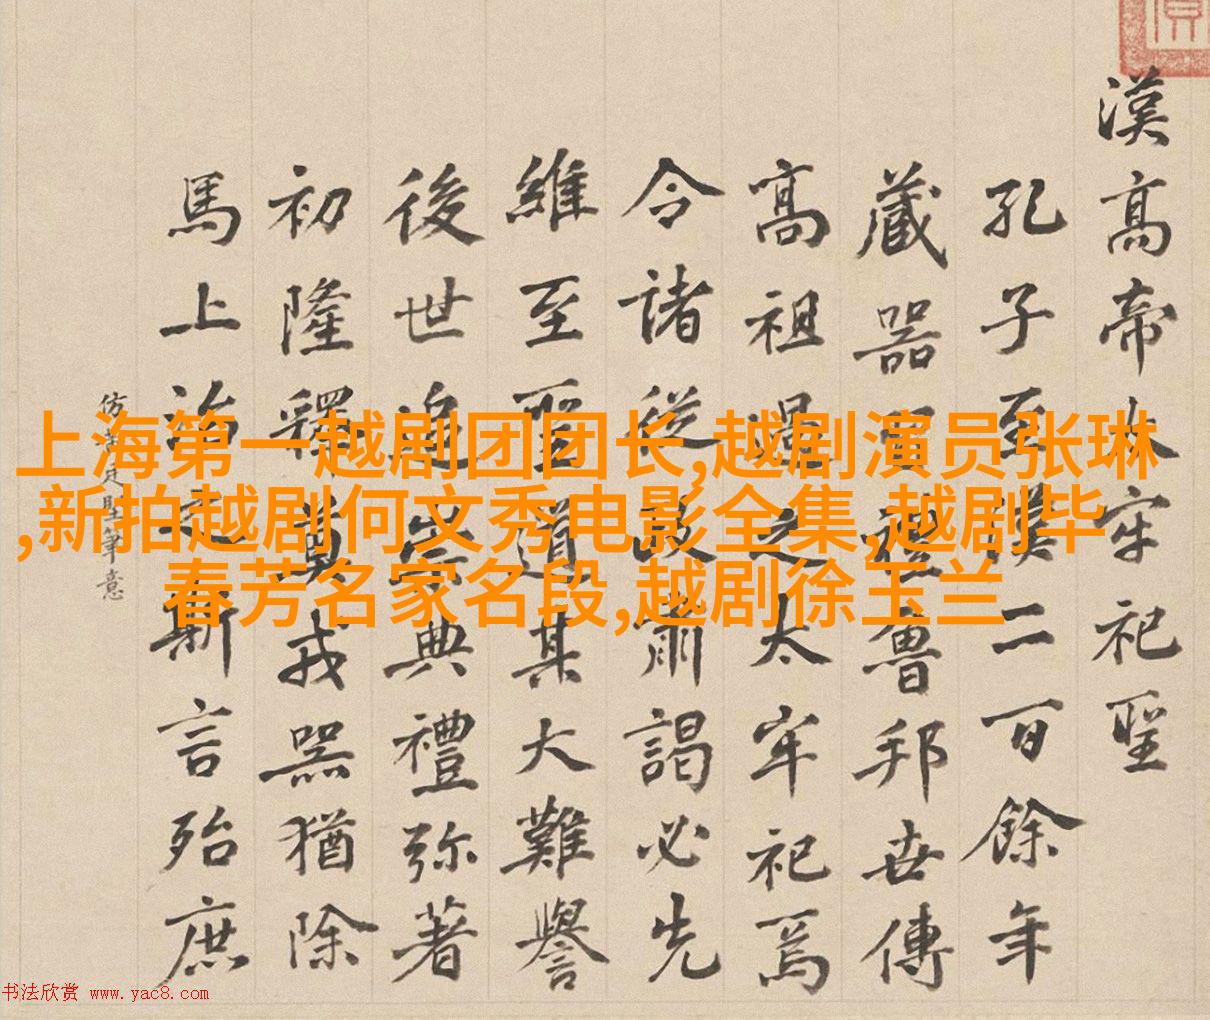 漢高帝太牢祀聖
孔子至漢二百餘年
藏器禮魯邦世傳
高祖過之太牢祀焉
令諸從政肅謁必先
維至聖道其大難譽
後世追崇典禮弥著
初隆釋奠戎器猶除
馬上治斯言殆庶
仿黃庭堅筆意
上海第一越剧团团长,越剧演员张琳
,新拍越剧何文秀电影全集,越剧毕
春芳名家名段,越剧徐玉兰
书法欣赏 www.yac8.com